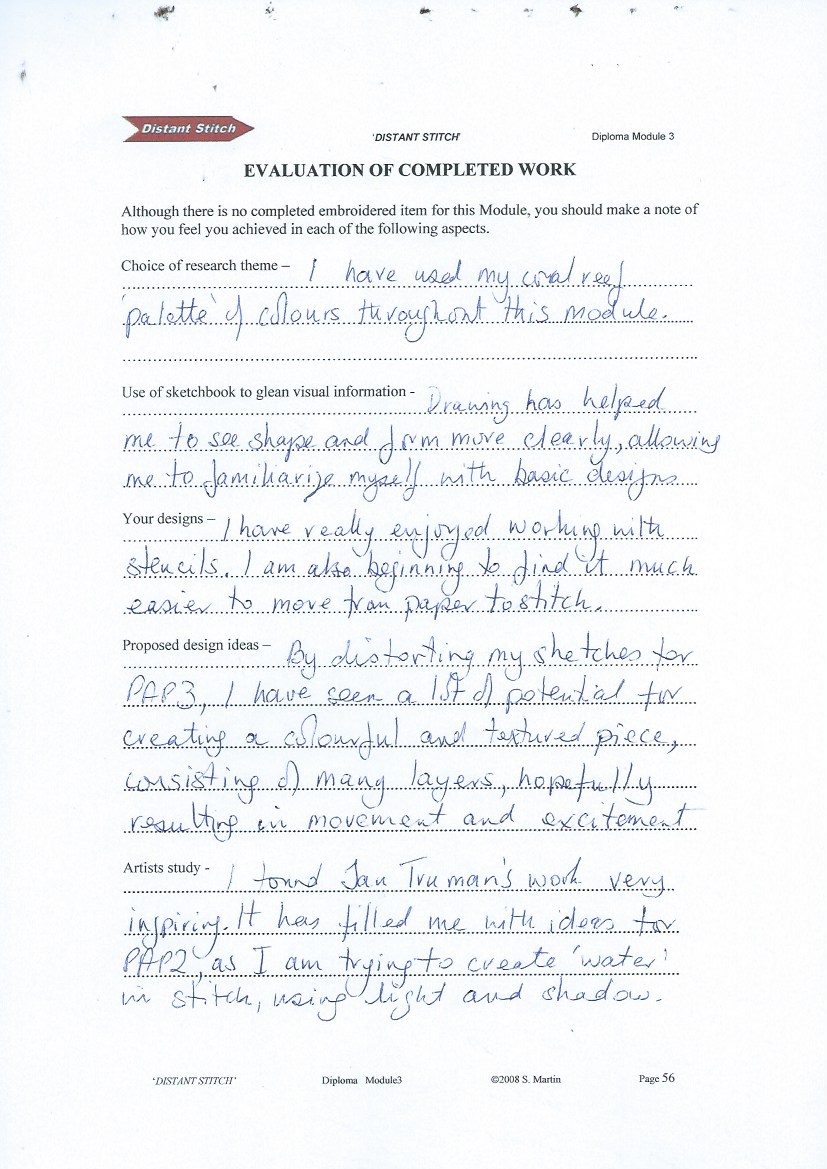 Distant Stitch
'DISTANT STITCH'
Diploma Module 3
EVALUATION OF COMPLETED WORK
Although there is no completed embroidered item for this Module, you should make a note of
how you feel you achieved in each of the following aspects.
Choice of research theme – I have used my coral reef
'palette' of colours throughout this module.
Use of sketchbook to glean visual information - Drawing has helped
me to see shape and form more clearly, allowing
me to familiarize myself with basic designs
Your designs – I have really enjoyed working with
stencils. I am also beginning to find it much
easier to move from paper to stitch.
Proposed design ideas – By distorting my sketches for
PAP3, I have seen a lot of potential for
creating a colourful and textured piece,
consisting of many layers, hopefully
resulting in movement and excitement
Artists study - I found Jan Truman's work very
inspiring. It has filled me with ideas for
PAP2, as I am trying to create 'water'
in stitch, using light and shadow.
'DISTANT STITCH'
Diploma Module3
©2008 S. Martin
Page 56